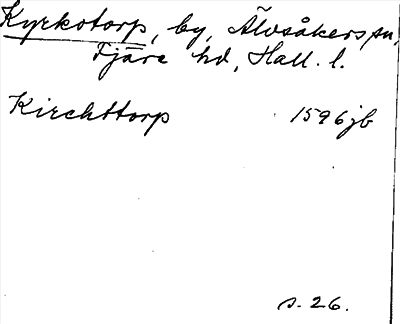 Kyrkotorp, by, Älvsåkers sn,
Fjäre hd, Hall. l.
Kirchttorp 1596 jb
s. 26.